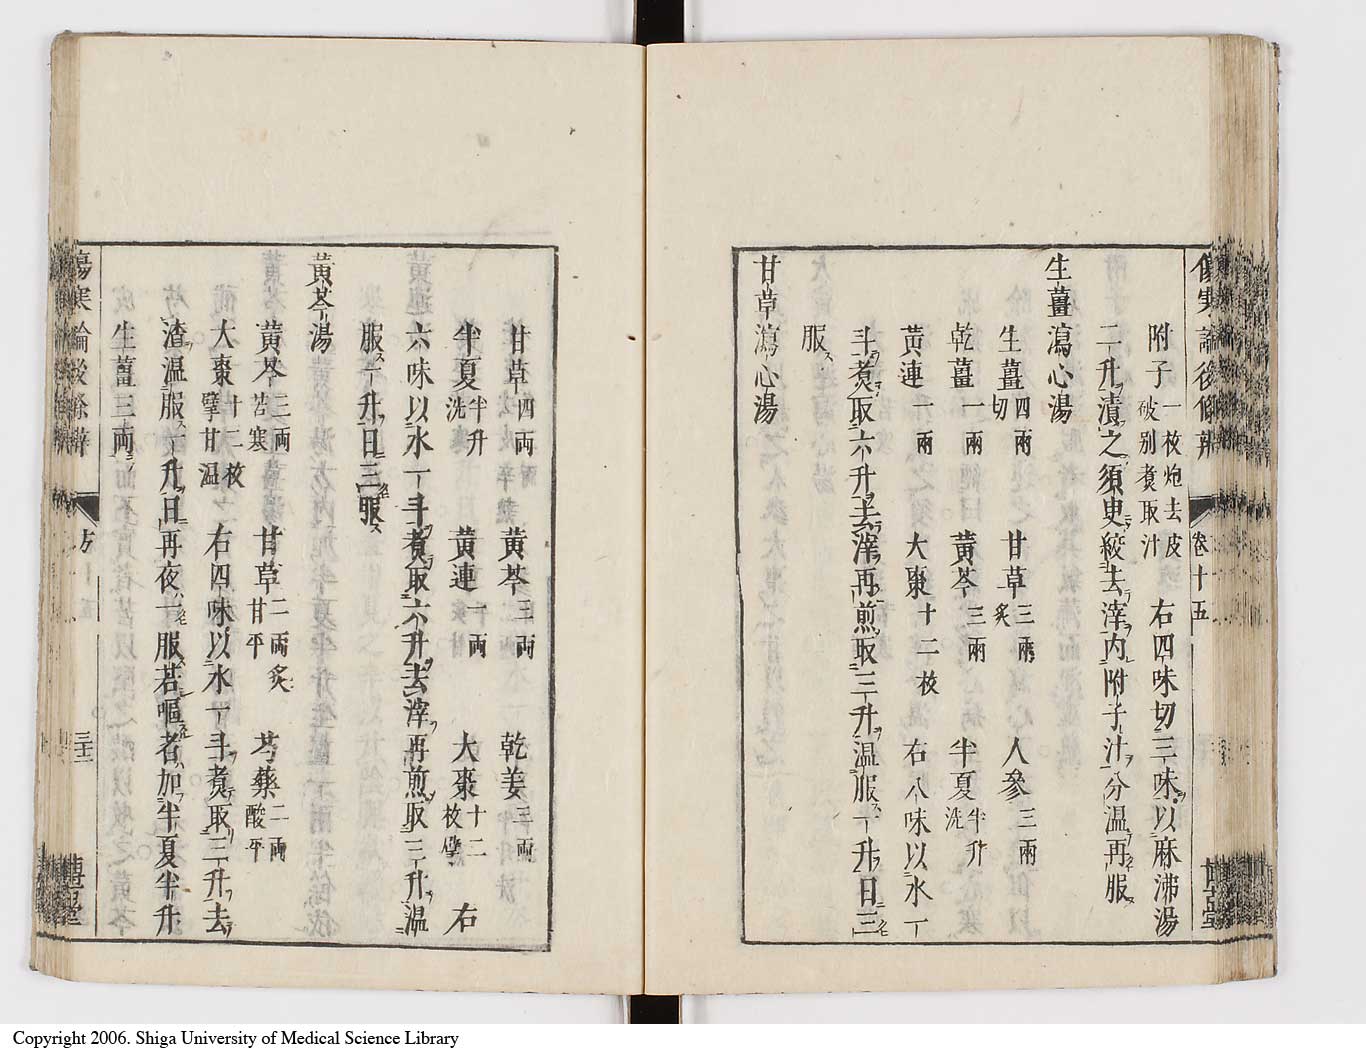 傷寒論後條辨 卷十五
附子一枚炮去皮破別煮取汁 右四味切三味以麻沸湯
二升漬之須臾絞去滓内附子汁分温再服
生薑瀉心湯
生薑四兩切 甘草三兩炙 人參三兩
乾薑一兩 黃芩三兩 半夏半升洗
黃連一兩 大棗十二枚 右八味以水一
斗煮取六升去滓再煎取三升温服一升日三
服
甘草瀉心湯
甘草四兩 黃芩三兩 乾姜三兩
半夏半升洗 黃連一兩 大棗十二枚擘 右
六味以水一斗煮取六升去滓再煎取三升温
服一升日三服
黃芩湯
黃芩三兩苦寒 甘草二兩炙甘平 芍藥二兩酸平
大棗十二枚擘甘温 右四味以水一斗煮取三升去
渣温服一升日再夜一服若嘔者加半夏半升
生薑三兩
Copyright 2006. Shiga University of Medical Science Library